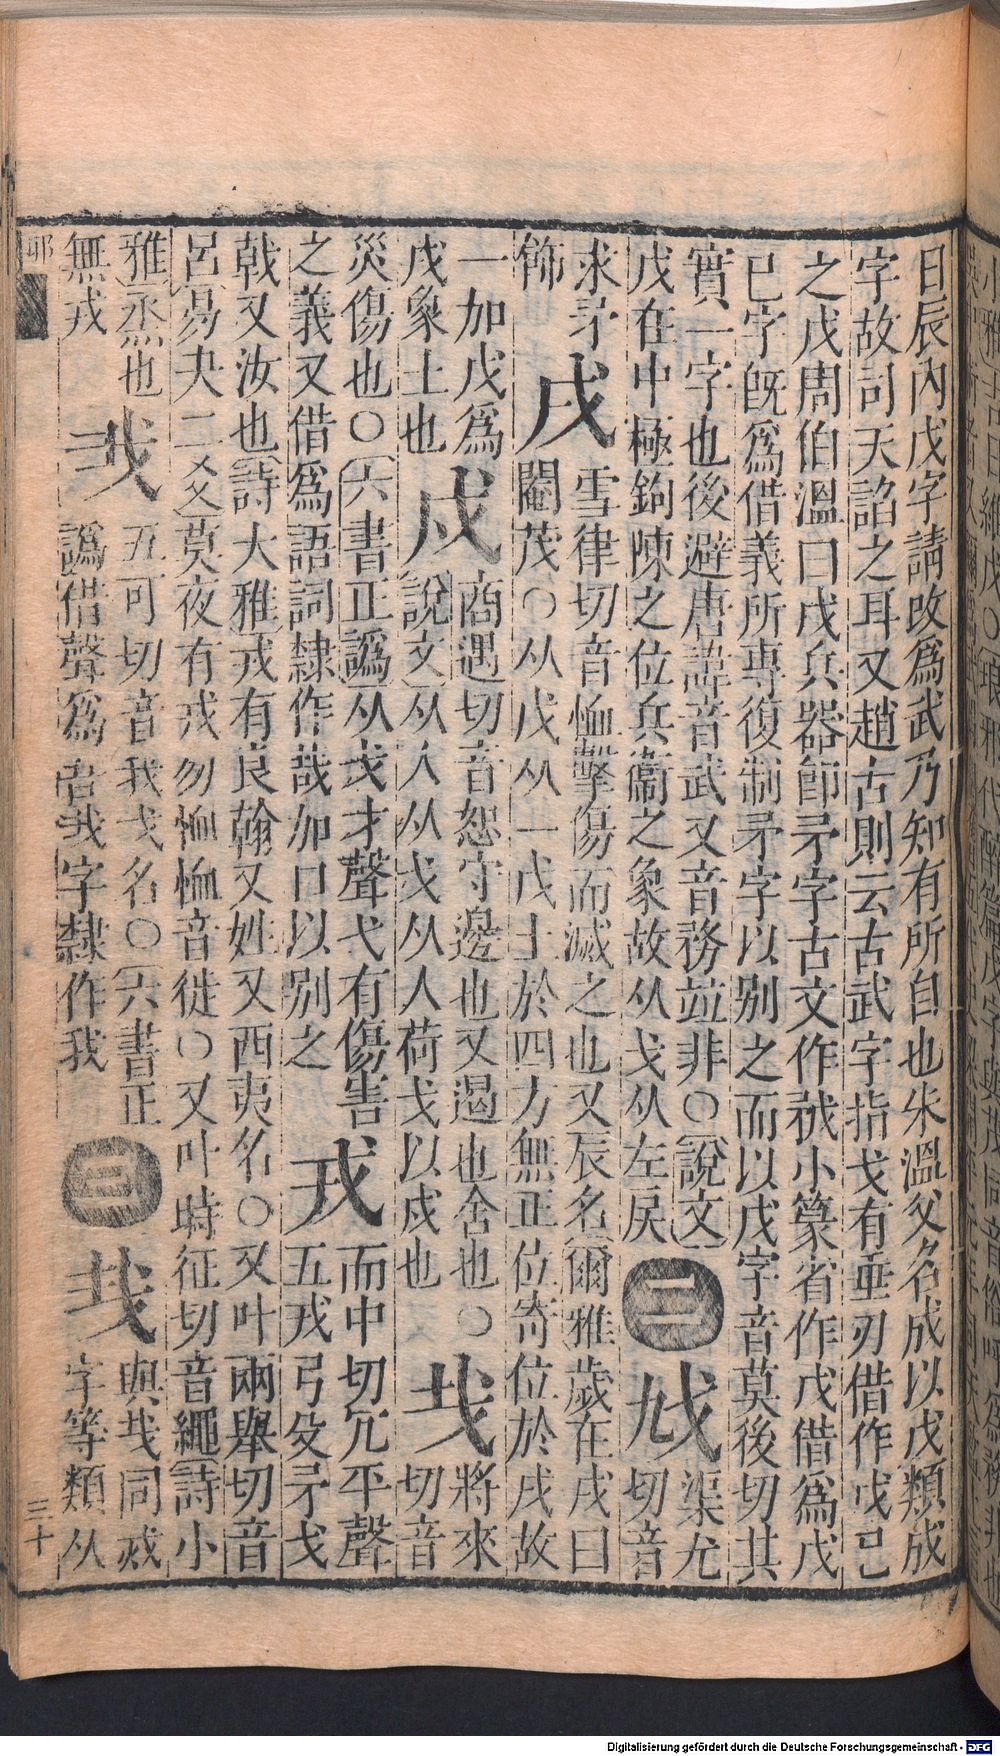 日辰內戊字請改爲武乃知有所自也朱溫父名成以戊類成
字故司天諂之耳又趙古則云古武字指戈有垂刃借作戊己
之戊周伯溫曰戊兵器節矛字古文作小篆省作戊借爲戊
已字旣爲借義所専復制矛字以别之而以戊字音莫後切其
實一字也後避唐諱音武又音務竝非○說文 二 渠尤
戊在中極鉤陳之位兵衞之象故从戈从左戾 切音
求矛 戌 雪律切音恤擊傷而滅之也又辰名爾雅歲在戌曰
飾 閹茂○从戊从一戊土於四方無正位寄位於戌故
一加戊爲 戍 商遇切音恕守邊也又遏也舍也○ 𢦏 將來
戊象土也 說文从人从戈从人荷戈以戍也 切音
災傷也○六書正譌从戈才聲弋有傷害 戎 而中切冗平聲
之義又借爲語詞隸作哉加口以别之 五戎弓殳矛戈
戟又汝也詩大雅戎有良翰又姓又西夷名○又叶兩舉切音
呂易夬二爻莫夜有戎勿恤恤音徙○又叶時征切音繩詩小
雅烝也 五可切音我戈名○六書正 三 與𢦏同烖
無戎 譌借聲爲吾我字隸作我 字等類从
耶
三十
Digitalisierung gefördert durch die Deutsche Forschungsgemeinschaft - DFG